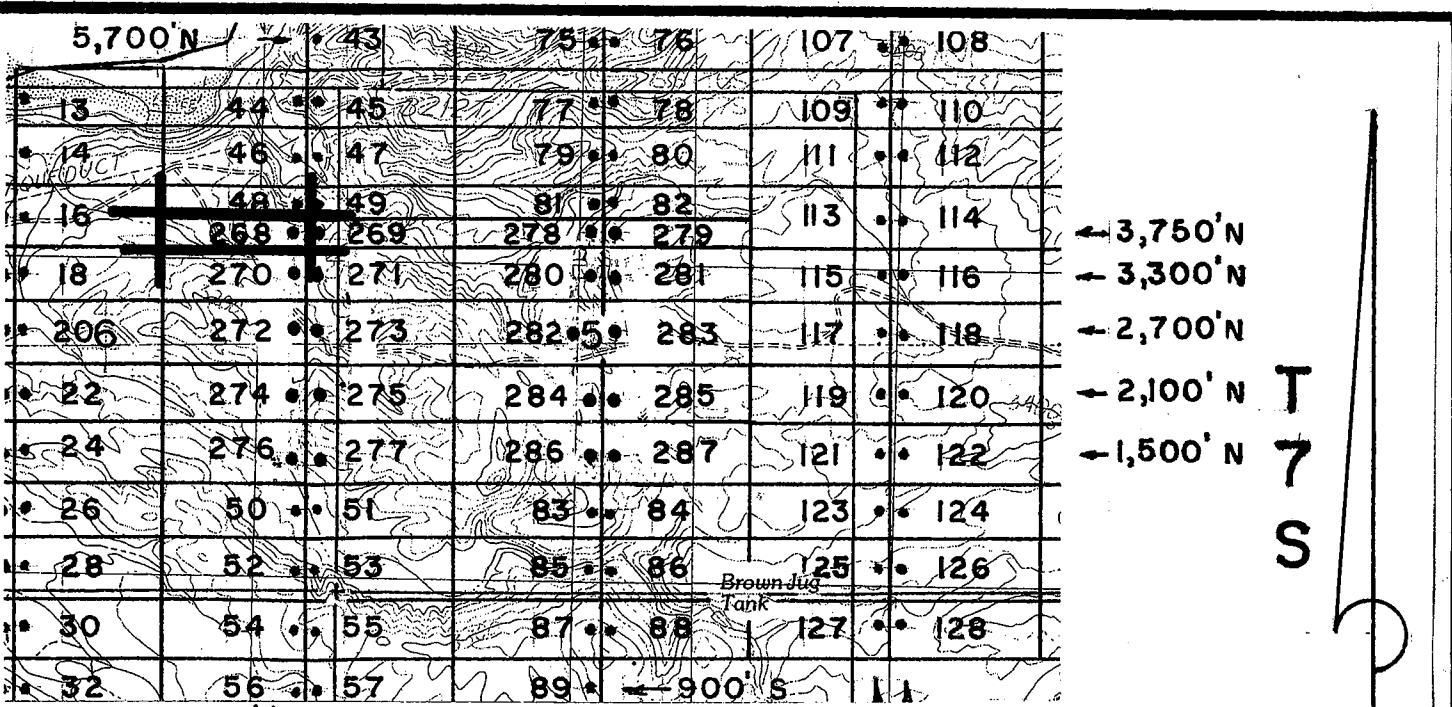 5,700' N 43 75 76 107 108
13 44 45 77 78 109 110
14 46 47 79 80 111 112
AQUEDUCT
16 48 49 81 82 113 114
268 269 278 279 3,750' N
18 270 271 280 281 115 116 3,300' N
206 272 273 282 5 283 117 118 2,700' N
22 274 275 284 285 119 120 2,100' N
24 276 277 286 287 121 122 1,500' N
T
7
S
26 50 51 83 84 123 124
28 52 53 85 86 125 126
Brown Jug
Tank
30 54 55 87 88 127 128
32 56 57 89 900' S